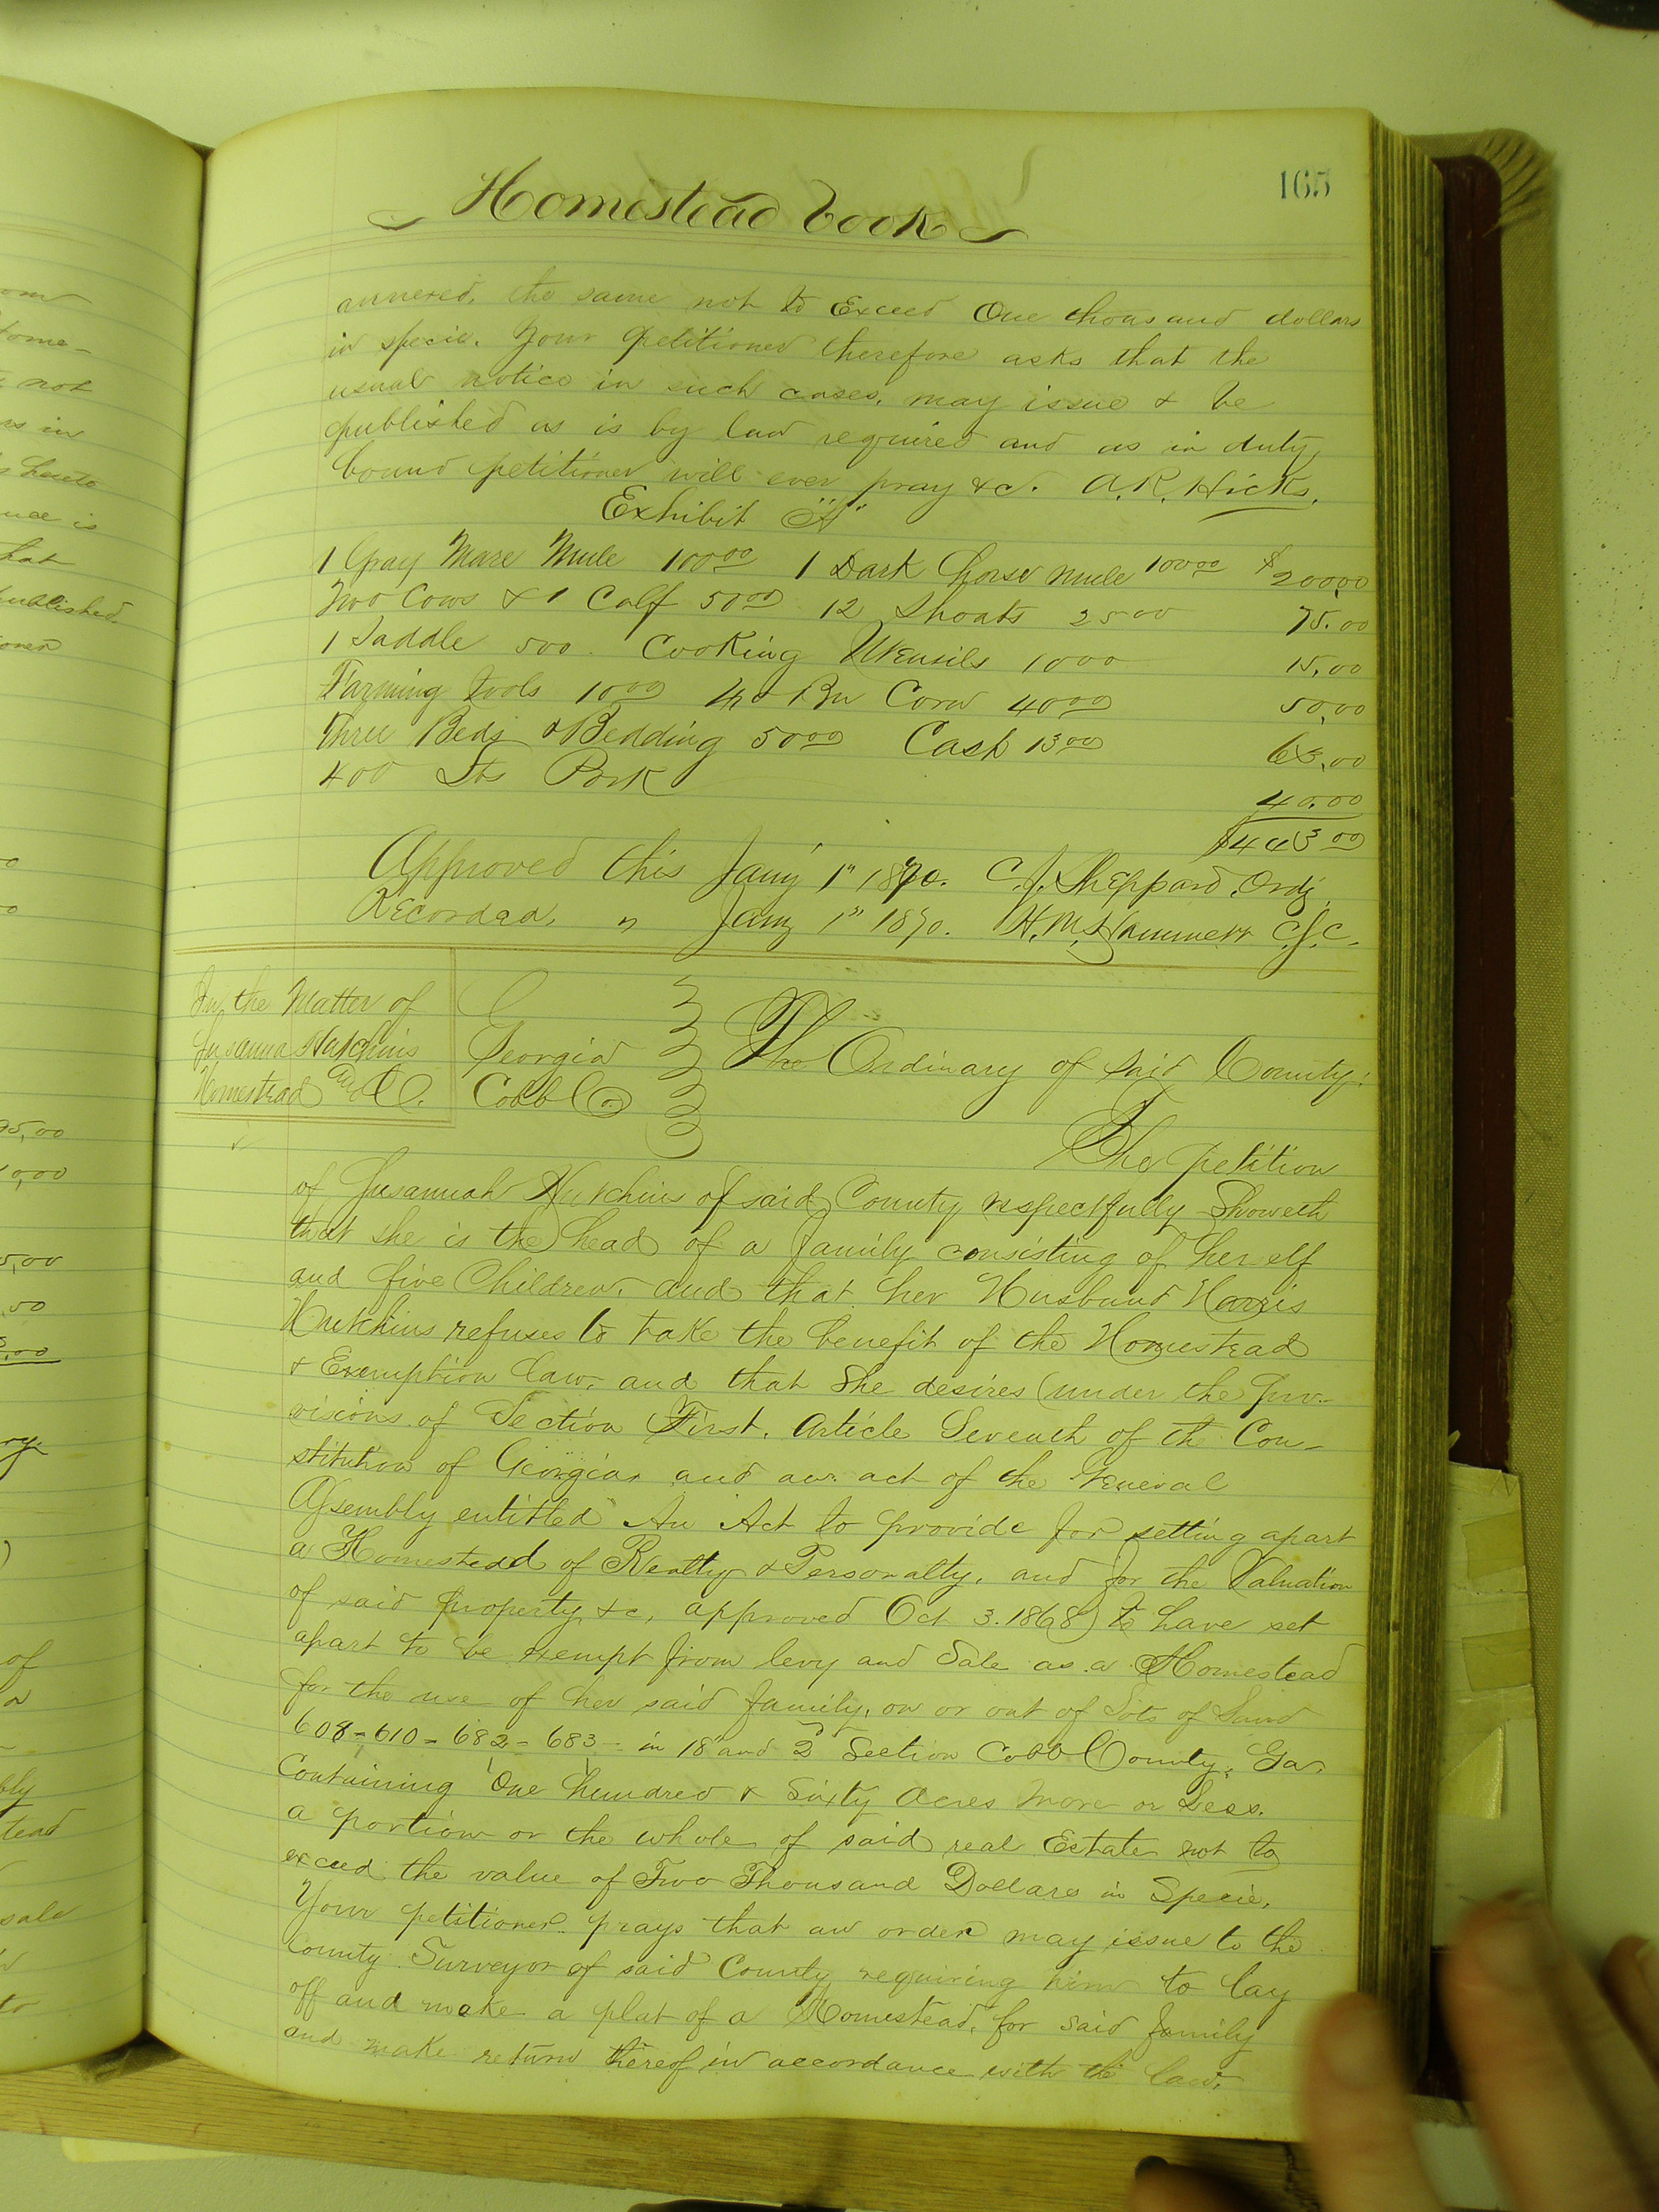 165
Homestead book
annexed, the same not to Exceed One thousand dollars
in specie. Your petitioner therefore asks that the
usual notice in such cases, may issue & be
published as is by law required and as in duty
bound petitioner will ever pray &c. A. R. Hicks.
Exhibit "A"
1 Gray Mare Mule 100 00 1 Dark horse mule 100 00 $200,00
Two Cows & 1 Calf 50 00 12 Shoats 25 00 75.00
1 Saddle 5 00 Cooking Utensils 10 00 15,00
Farming tools 10 00 40 Bu Corn 40 00 50,00
Three Beds & Bedding 50 00 Cash 13 00 63,00
400 lbs Pork 40.00
$443 00
Approved this Jany 1" 1870. C. J. Sheppard, Ordy
Recorded, " Jany 1" 1870. H. M. Hammett C.S.C.
In the Matter of
Susanna Hutchins
Homestead &C.
Georgia
Cobb Co
The Ordinary of said County:
The petition
of Susannah Hutchins of said County respectfully Showeth
that she is the head of a family consisting of herself
and five Children, and that her Husband Harris
Hutchins refuses to take the benefit of the Homestead
& Exemption law, and that She desires (under the pro-
visions of Section First, Article Seventh of th Con-
stitution of Georgia, and an act of the General
Assembly entitled An Act to provide for setting apart
a Homestead of Realty & Personalty, and for the Valuation
of said property, &c, approved Oct 3. 1868) to have set
apart to be exempt from levy and Sale as a Homestead
for the use of her said family, on or out of Lots of Land
608-610-682-683- in 18 and 2d Section Cobb County, Ga.
Containing One hundred & Sixty Acres More or Less.
a portion or the whole of said real Estate not to
exceed the value of Two Thousand Dollars in Specie.
Your petitioner prays that an order may issue to the
County Surveyor of said County requiring him to lay
off and make a plat of a Homestead, for said family
and make return thereof in accordance with the law,